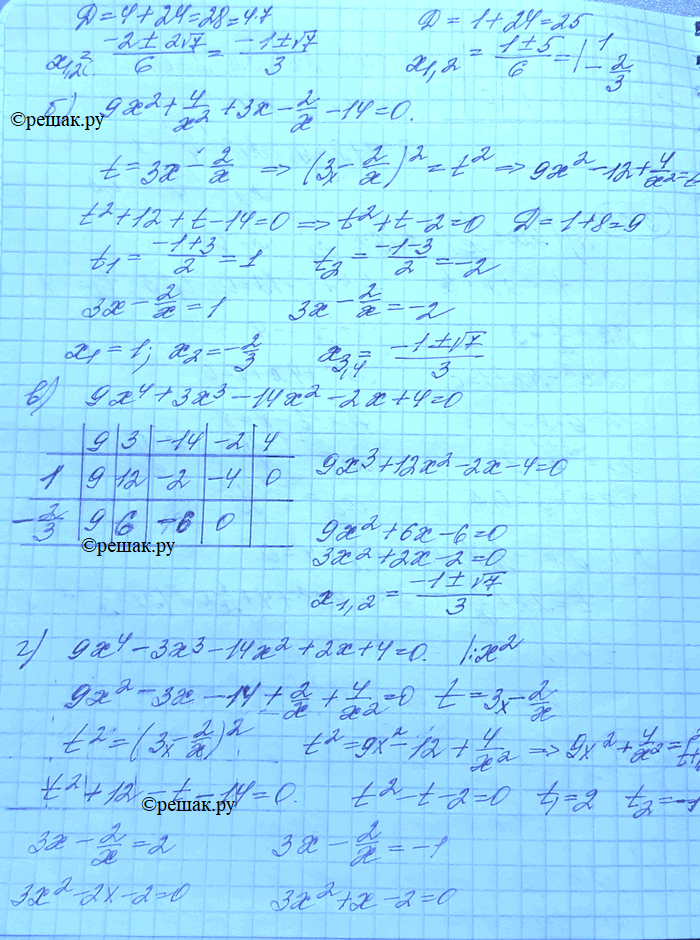 D=4+24=28=4·7    D=1+24=25
x₁,₂= (-2±2√7)/6 = (-1±√7)/3    x₁,₂ = (1±5)/6 = | 1  -2/3
б) 9x²+4/x²+3x-2/x-14=0.
©решак.ру
t=3x-2/x ⇒ (3x-2/x)²=t² ⇒ 9x²-12+4/x²=t
t²+12+t-14=0 ⇒ t²+t-2=0    D=1+8=9
t₁= (-1+3)/2 =1    t₂= (-1-3)/2 =-2
3x-2/x=1    3x-2/x=-2
x₁=1; x₂=-2/3    x₃,₄= (-1±√7)/3
в) 9x⁴+3x³-14x²-2x+4=0
| 9 | 3 | -14 | -2 | 4
1 | 9 | 12 | -2 | -4 | 0    9x³+12x²-2x-4=0
-2/3 | 9 | 6 | -6 | 0 |    9x²+6x-6=0
©решак.ру
3x²+2x-2=0
x₁,₂ = (-1±√7)/3
г) 9x⁴-3x³-14x²+2x+4=0. |:x²
9x²-3x-14+2/x+4/x²=0    t=3x-2/x
t²=(3x-2/x)²    t²=9x²-12+4/x² ⇒ 9x²+4/x²=
t²+12-t-14=0.    t²-t-2=0    t₁=2    t₂=-1
©решак.ру
3x-2/x=2    3x-2/x=-1
3x²-2x-2=0    3x²+x-2=0